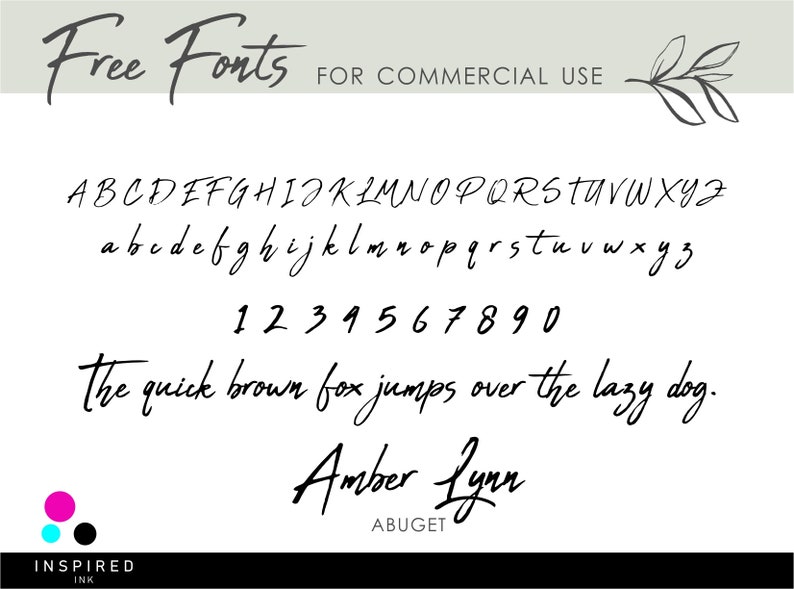 Free Fonts FOR COMMERCIAL USE
A B C D E F G H I J K L M N O P Q R S T U V W X Y Z
a b c d e f g h i j k l m n o p q r s t u v w x y z
1 2 3 4 5 6 7 8 9 0
The quick brown fox jumps over the lazy dog.
Amber Lynn
ABUGET
INSPIRED
INK